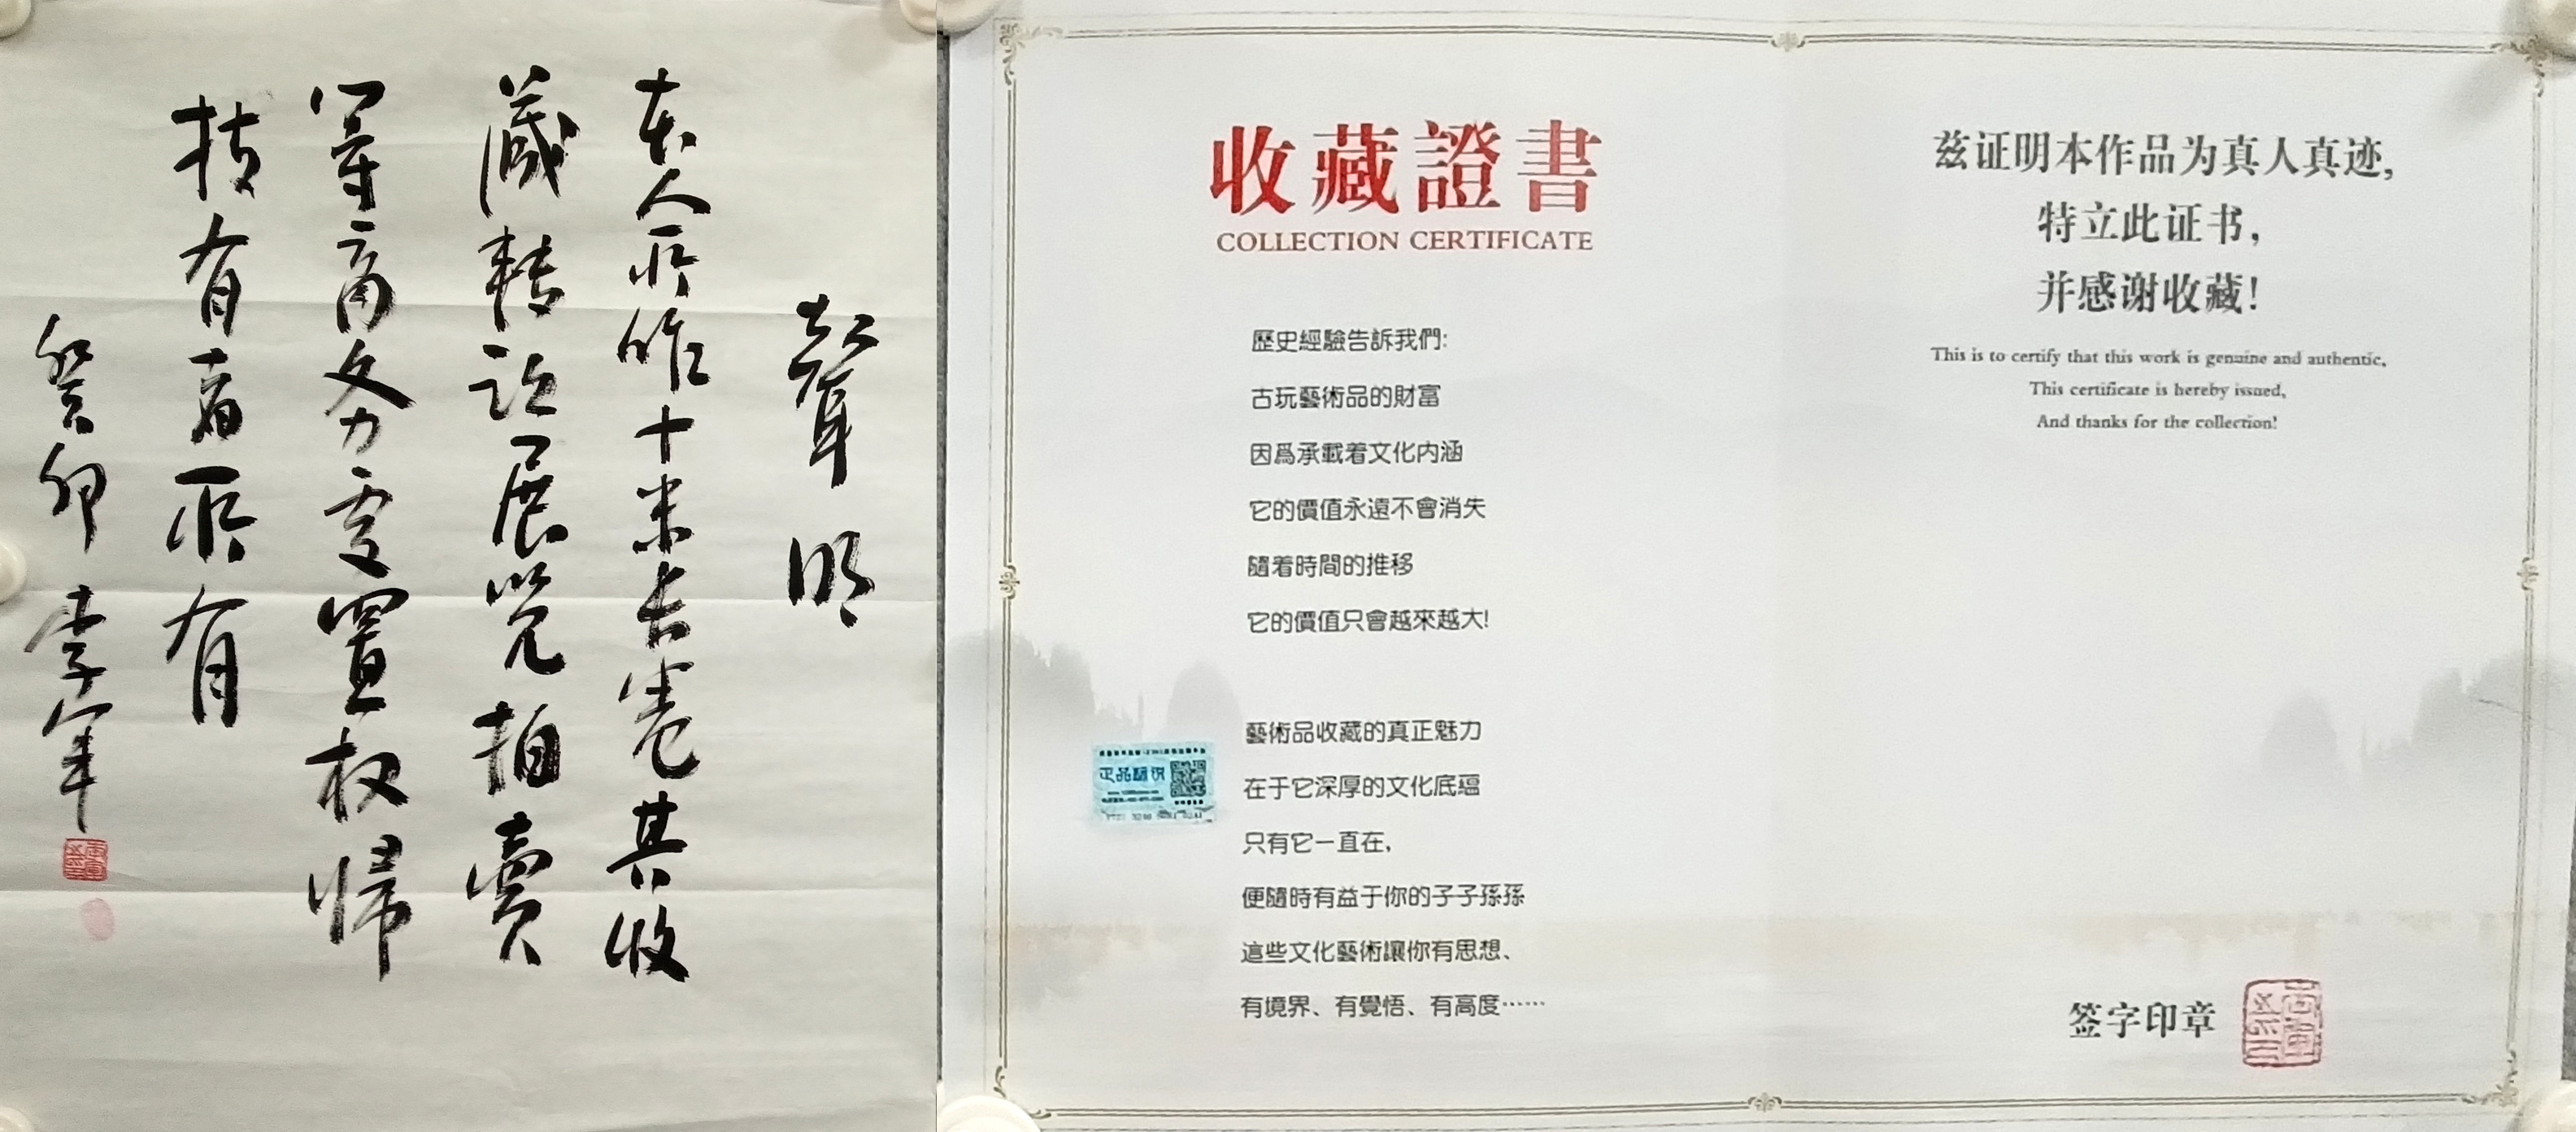 聲明
本人所作十米长卷其收
藏转让展览拍賣
等商务事宜权归
持有者所有
癸卯 李军
收藏證書
COLLECTION CERTIFICATE
歷史經驗告訴我們:
古玩藝術品的財富
因爲承載着文化内涵
它的價值永遠不會消失
隨着時間的推移
它的價值只會越來越大!
藝術品收藏的真正魅力
在于它深厚的文化底蕴
只有它一直在,
便隨時有益于你的子子孫孫
這些文化藝術讓你有思想、
有境界、有覺悟、有高度……
正品标识
兹证明本作品为真人真迹,
特立此证书,
并感谢收藏!
This is to certify that this work is genuine and authentic,
This certificate is hereby issued,
And thanks for the collection!
签字印章